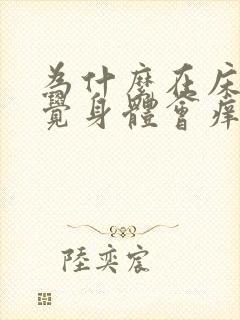 為什麼在床
覺身體會痒
陸奕宸